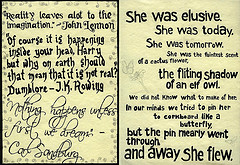 Reality leaves alot to the
imagination." - John Lennon
"Of course it is happening
inside your head Harry,
but why on earth should
that mean that it is not real?
Dumbledore - J.K. Rowling
Nothing happens unless
first we dream.
Carl Sandburg
She was elusive.
She was today.
She was tomorrow.
She was the faintest scent
of a cactus flower,
the flitting shadow
of an elf owl.
We did not know what to make of her.
In our minds we tried to pin her
to corkboard like a
butterfly
but the pin merely went
through
and away she flew.